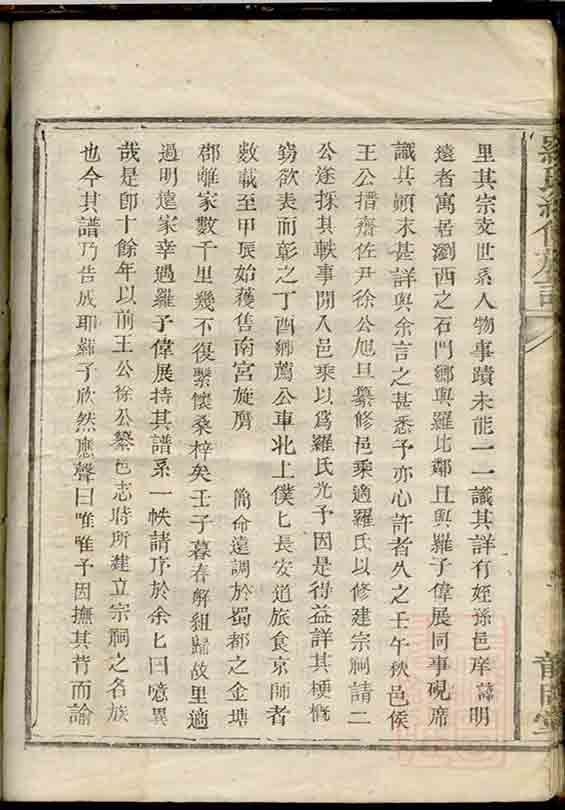 里其宗支世系人物事蹟未能一一識其詳有姪孫邑庠諱明
遠者寓居瀏西之石門鄉與羅比鄰且與羅子偉展同事硯席
識其顛末甚詳與余言之甚悉予亦心許者久之壬午秋邑侯
王公搢齋佐尹徐公旭旦纂修邑乘適羅氏以修建宗祠請二
公遂採其軼事開入邑乘以爲羅氏光予因是得益詳其梗概
竊欲表而彰之丁酉鄉薦公車北上僕匕長安道旅食京師者
數載至甲辰始獲售南宮旋膺　簡命遠調於蜀都之金塘
郡離家數千里幾不復繫懷桑梓矣壬子暮春解組歸故里適
過明遠家幸遇羅子偉展持其譜系一帙請序於余匕曰噫異
哉是卽十餘年以前王公徐公纂邑志時所建立宗祠之名族
也今其譜乃告成耶羅子欣然應聲曰唯唯予因撫其背而諭